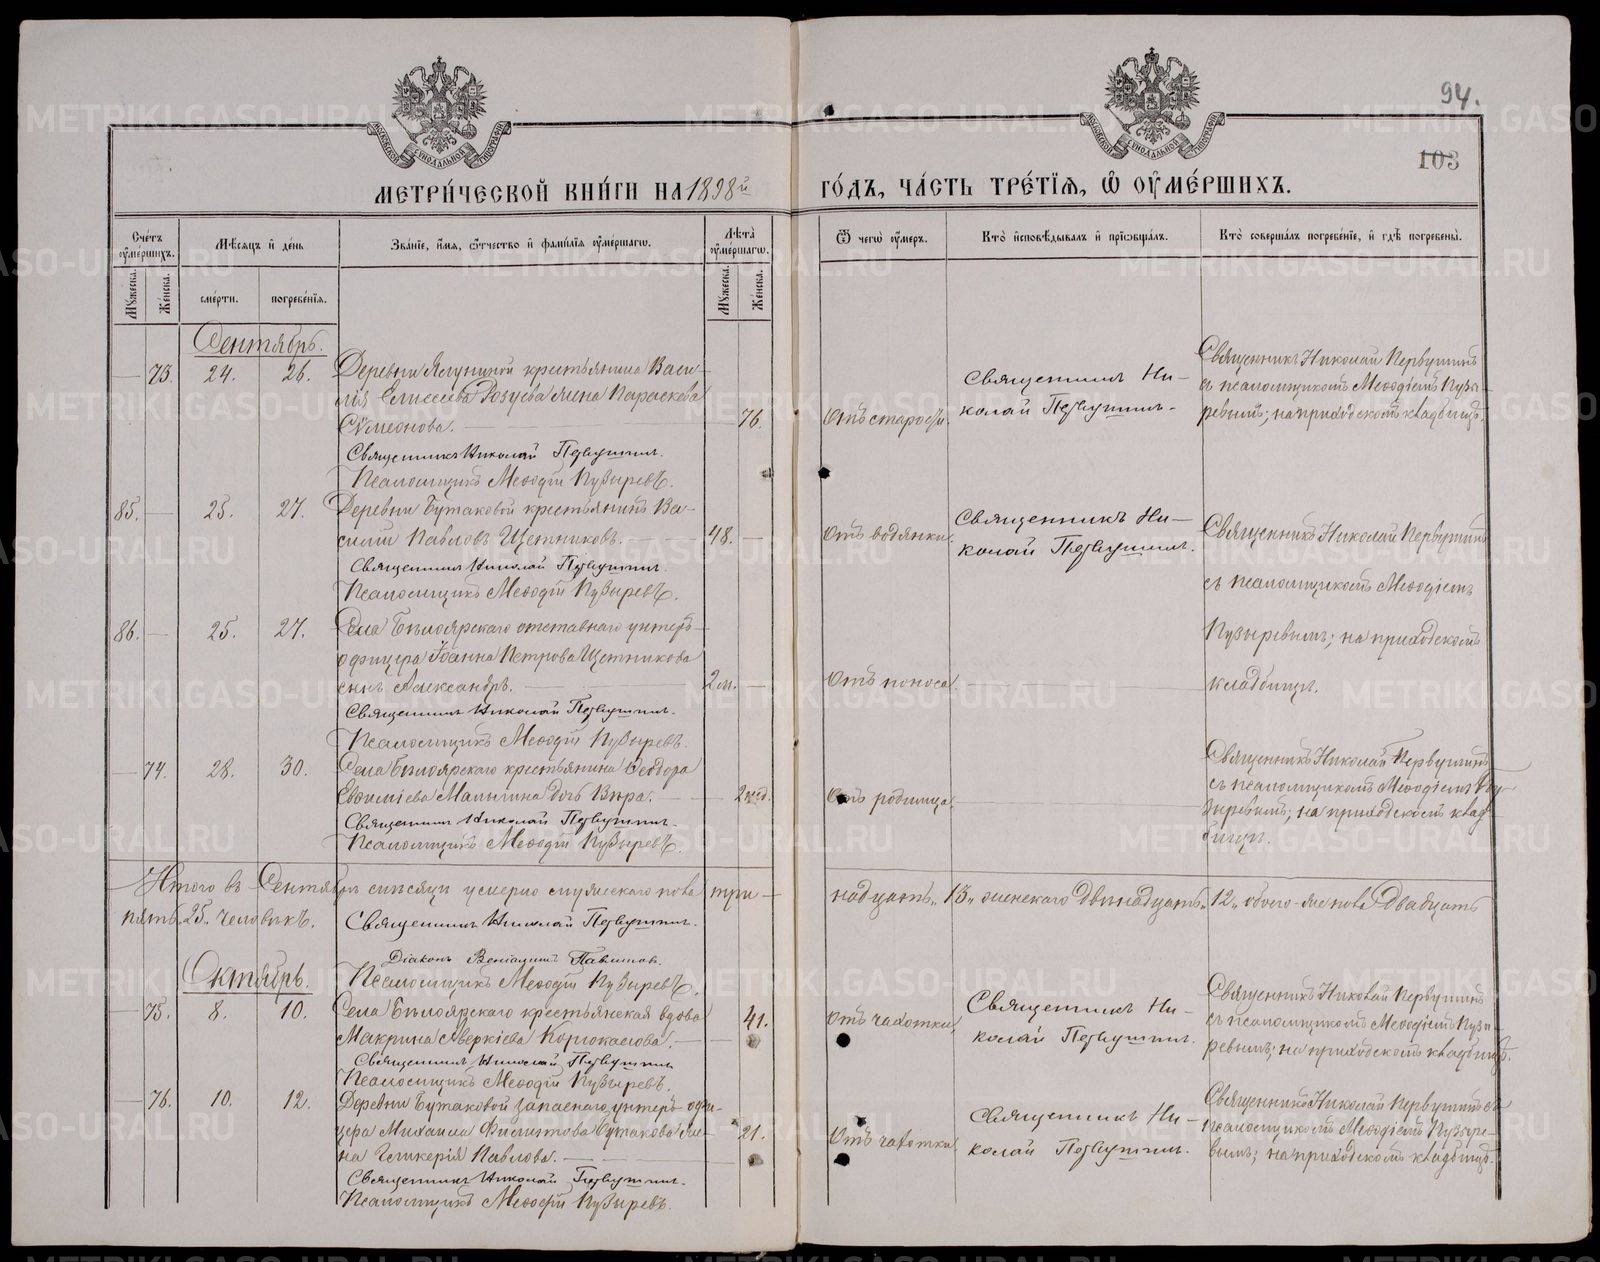 94.
103
МЕТРИ́ЧЕСКОЙ КНИ́ГИ НА 1898й
ГО́ДЪ, ЧА́СТЬ ТРЕ́ТІѦ, Ѿ ОУМЕ́РШИХЪ.
Сче́тъ оуме́ршихъ.
Мꙋ́жеска.
Же́нска.
Мѣ́сяцъ и҆ де́нь
сме́рти.
погребе́нїѧ.
Зва́нїе, и҆́мѧ, ѻ҆́тчество и҆ фами́лїѧ оуме́ршагѡ.
Лѣ́та оуме́ршагѡ.
Мꙋ́жеска.
Же́нска.
Ѿ чегѡ̀ оу́меръ.
Кто̀ и҆сповѣ́дывалъ и҆ прїѡбща́лъ.
Кто̀ соверша́лъ погребе́нїе, и҆ гдѣ̀ погребены̀.
Сентябрь.
73. 24. 26.
Деревни Ялуниной крестьянина Васи-
лія Елисеева Розуева жена Параскева
Сѵмеонова. 76.
Священникъ Николай Первушинъ.
Псаломщикъ Меѳодій Пузыревъ.
Отъ старости.
Священникъ Ни-
колай Первушинъ.
Священникъ Николай Первушинъ
съ псаломщикомъ Меѳодіемъ Пузы-
ревымъ; на приходскомъ кладбищѣ.
85. 25. 27.
Деревни Бутаковой крестьянинъ Ва-
силій Павловъ Щетниковъ. 48.
Священникъ Николай Первушинъ.
Псаломщикъ Меѳодій Пузыревъ.
Отъ водянки.
Священникъ Ни-
колай Первушинъ.
Священникъ Николай Первушинъ
съ псаломщикомъ Меѳодіемъ
Пузыревымъ; на приходскомъ
кладбищѣ.
86. 25. 27.
Села Бѣлоярскаго отставнаго унтеръ-
офицера Іоанна Петрова Щетникова
сынъ Александръ. 2 м.
Священникъ Николай Первушинъ.
Псаломщикъ Меѳодій Пузыревъ.
Отъ поноса.
74. 28. 30.
Села Бѣлоярскаго крестьянина Ѳеодора
Евѳиміева Малыгина дочь Вѣра. 2 нед.
Священникъ Николай Первушинъ.
Псаломщикъ Меѳодій Пузыревъ.
Отъ родимца.
Священникъ Николай Первушинъ
съ псаломщикомъ Меѳодіемъ Пу-
зыревымъ; на приходскомъ клад-
бищѣ.
Итого въ Сентябрѣ мѣсяцѣ умерло мужескаго пола три-
надцать „13„ женскаго двѣнадцать „12„ обоего пола двадцать
пять „25„ человѣкъ.
Священникъ Николай Первушинъ.
Діаконъ Веніаминъ
Псаломщикъ Меѳодій Пузыревъ.
Октябрь.
75. 8. 10.
Села Бѣлоярскаго крестьянская вдова
Макрина Аверкіева Корюкалова. 41.
Священникъ Николай Первушинъ
Псаломщикъ Меѳодій Пузыревъ.
Отъ чахотки.
Священникъ Ни-
колай Первушинъ.
Священникъ Николай Первушинъ
съ псаломщикомъ Меѳодіемъ Пузы-
ревымъ; на приходскомъ кладбищѣ.
76. 10. 12.
Деревни Бутаковой запаснаго унтеръ-офи-
цера Михаила Филиппова Бутакова же-
на Гликерія Павлова. 21.
Священникъ Николай Первушинъ.
Псаломщикъ Меѳодій Пузыревъ.
Отъ чахотки.
Священникъ Ни-
колай Первушинъ.
Священникъ Николай Первушинъ съ
псаломщикомъ Меѳодіемъ Пузыре-
вымъ; на приходскомъ кладбищѣ.
METRIKI.GASO-URAL.RU